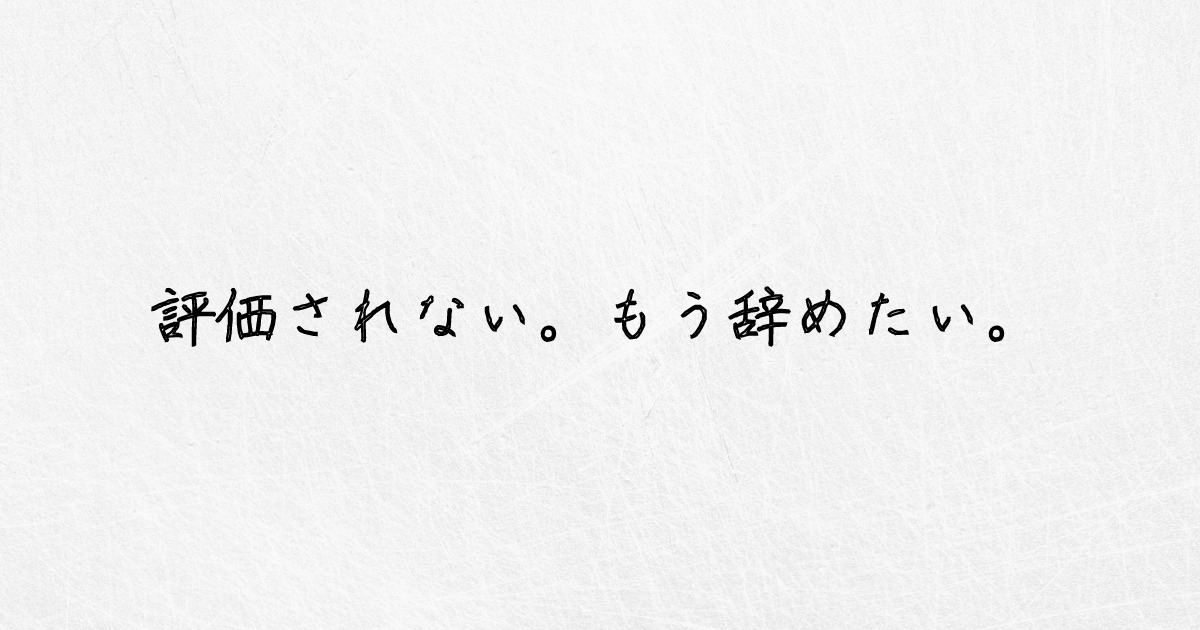 評価されない。もう辞めたい。